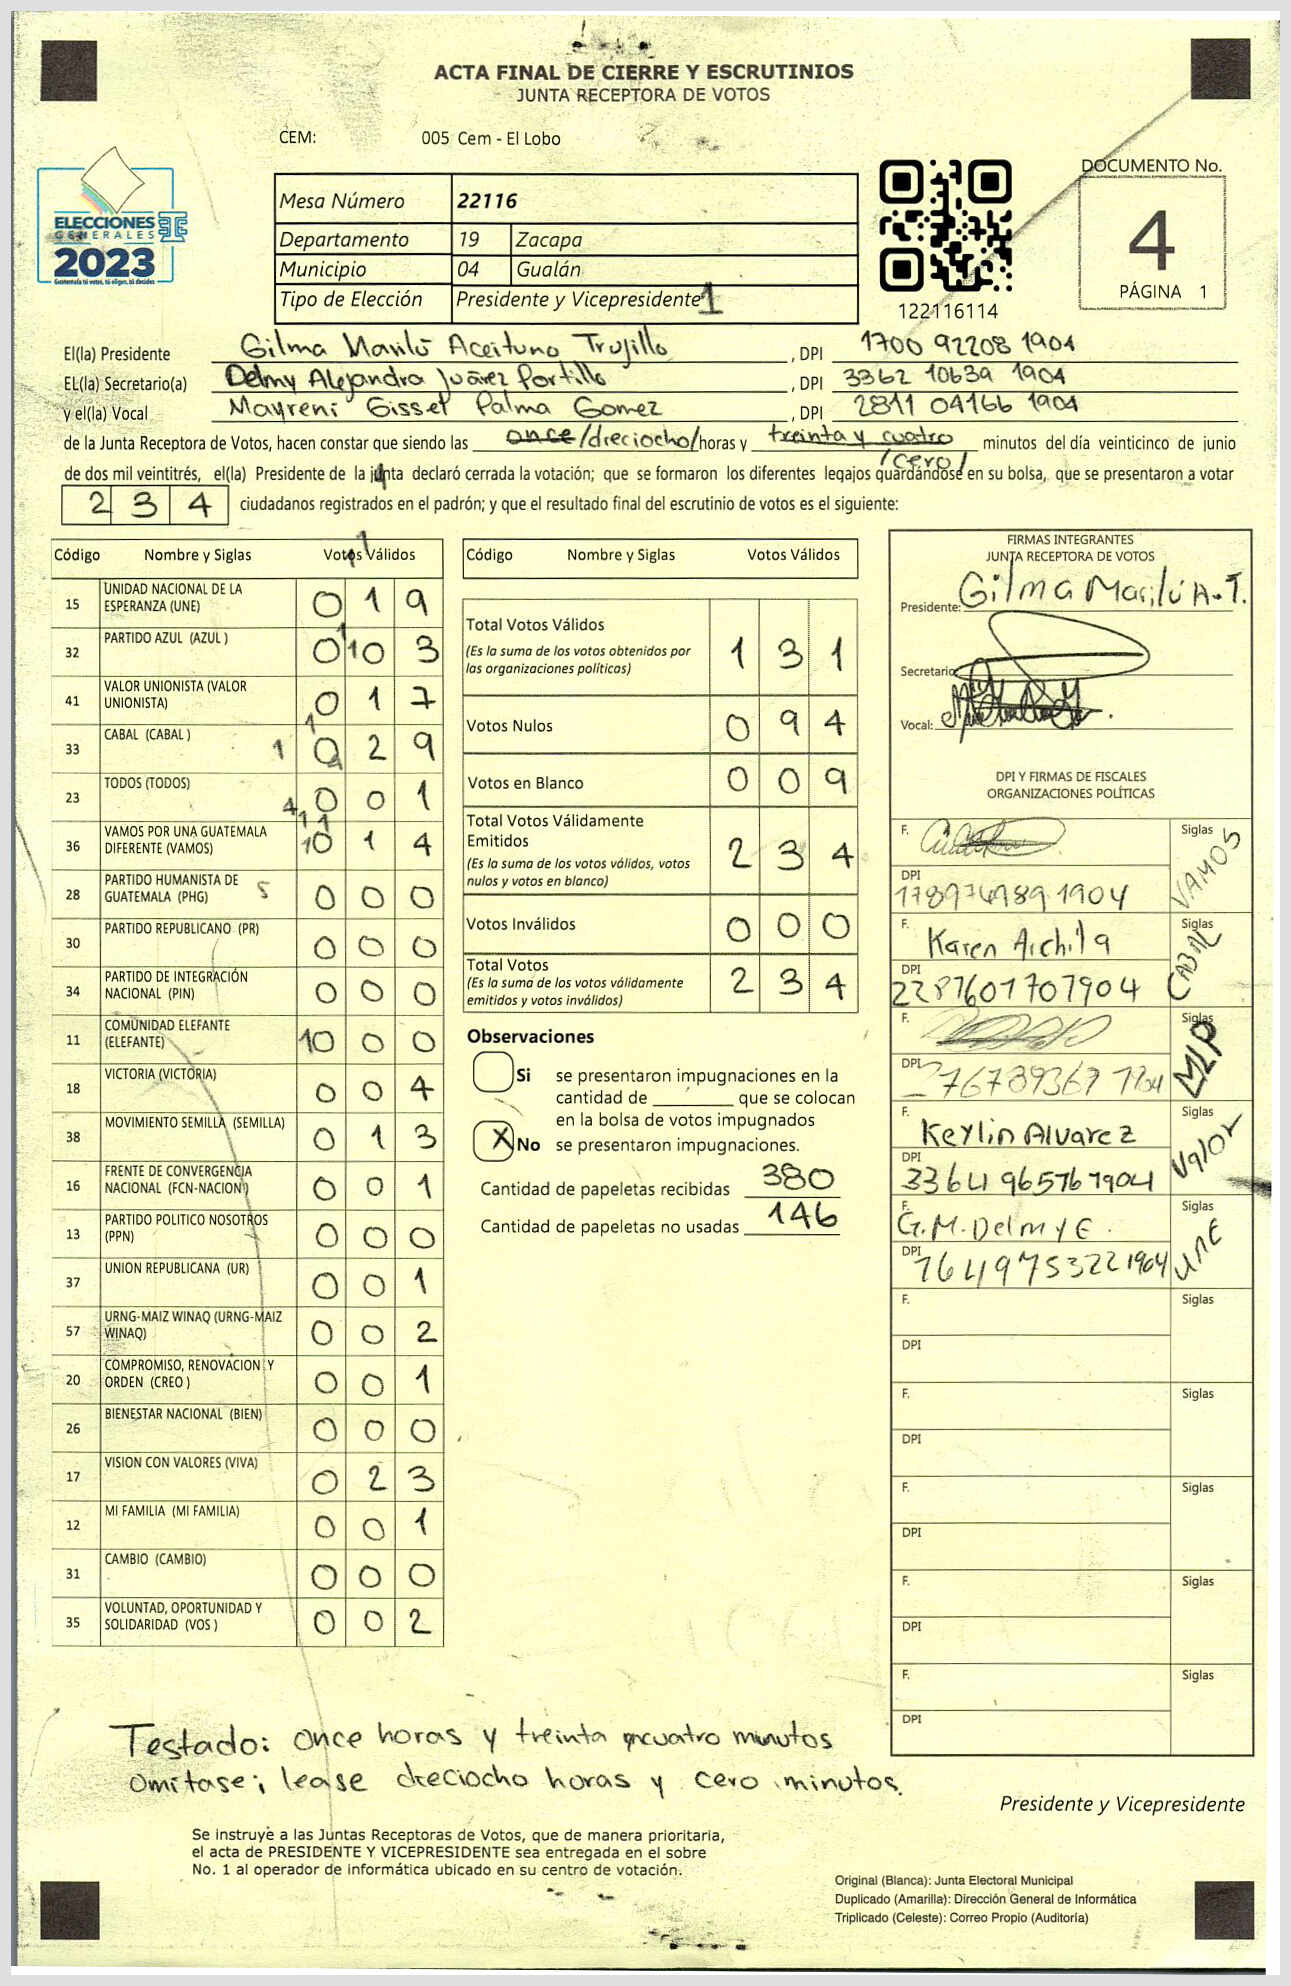 ACTA FINAL DE CIERRE Y ESCRUTINIOS
JUNTA RECEPTORA DE VOTOS
CEM: 005 Cem - El Lobo
ELECCIONES
GENERALES
2023
Guatemala tú votas, tú eliges, tú decides
Mesa Número 22116
Departamento 19 Zacapa
Municipio 04 Gualán
Tipo de Elección Presidente y Vicepresidente 1
122116114
DOCUMENTO No.
4
PÁGINA 1
El(la) Presidente Gilma Marilú Aceituno Trujillo, DPI 1700 92208 1904
EL(la) Secretario(a) Delmy Alejandra Juárez Portillo, DPI 3362 10639 1904
y el(la) Vocal Mayreni Gisset Palma Gomez, DPI 2811 04166 1904
de la Junta Receptora de Votos, hacen constar que siendo las once/dieciocho/horas y treinta y cuatro minutos del día veinticinco de junio
/cero/
de dos mil veintitrés, el(la) Presidente de la junta declaró cerrada la votación; que se formaron los diferentes legajos guardándose en su bolsa, que se presentaron a votar
2 3 4 ciudadanos registrados en el padrón; y que el resultado final del escrutinio de votos es el siguiente:
Código Nombre y Siglas Votos Válidos
15 UNIDAD NACIONAL DE LA ESPERANZA (UNE) 0 1 9
32 PARTIDO AZUL (AZUL ) 0 10 3
41 VALOR UNIONISTA (VALOR UNIONISTA) 0 1 7
33 CABAL (CABAL ) 1 0 2 9
23 TODOS (TODOS) 0 0 1
36 VAMOS POR UNA GUATEMALA DIFERENTE (VAMOS) 10 1 4
28 PARTIDO HUMANISTA DE GUATEMALA (PHG) 5 0 0 0
30 PARTIDO REPUBLICANO (PR) 0 0 0
34 PARTIDO DE INTEGRACIÓN NACIONAL (PIN) 0 0 0
11 COMUNIDAD ELEFANTE (ELEFANTE) 10 0 0
18 VICTORIA (VICTORIA) 0 0 4
38 MOVIMIENTO SEMILLA (SEMILLA) 0 1 3
16 FRENTE DE CONVERGENCIA NACIONAL (FCN-NACION) 0 0 1
13 PARTIDO POLITICO NOSOTROS (PPN) 0 0 0
37 UNION REPUBLICANA (UR) 0 0 1
57 URNG-MAIZ WINAQ (URNG-MAIZ WINAQ) 0 0 2
20 COMPROMISO, RENOVACION Y ORDEN (CREO ) 0 0 1
26 BIENESTAR NACIONAL (BIEN) 0 0 0
17 VISION CON VALORES (VIVA) 0 2 3
12 MI FAMILIA (MI FAMILIA) 0 0 1
31 CAMBIO (CAMBIO) 0 0 0
35 VOLUNTAD, OPORTUNIDAD Y SOLIDARIDAD (VOS ) 0 0 2
Código Nombre y Siglas Votos Válidos
Total Votos Válidos 1 3 1
(Es la suma de los votos obtenidos por
las organizaciones políticas)
Votos Nulos 0 9 4
Votos en Blanco 0 0 9
Total Votos Válidamente
Emitidos 2 3 4
(Es la suma de los votos válidos, votos
nulos y votos en blanco)
Votos Inválidos 0 0 0
Total Votos 2 3 4
(Es la suma de los votos válidamente
emitidos y votos inválidos)
Observaciones
Si se presentaron impugnaciones en la
cantidad de ________ que se colocan
en la bolsa de votos impugnados
X No se presentaron impugnaciones.
Cantidad de papeletas recibidas 380
Cantidad de papeletas no usadas 146
FIRMAS INTEGRANTES
JUNTA RECEPTORA DE VOTOS
Presidente: Gilma Marilú A.T.
Secretario
Vocal:
DPI Y FIRMAS DE FISCALES
ORGANIZACIONES POLÍTICAS
F. Siglas VAMOS
DPI
F. Karen Archila Siglas CABAL
DPI 2287601707904
F. Siglas MLP
DPI
F. Keylin Alvarez Siglas Valor
DPI 3364 965761904
F. G.M. Delmy E. Siglas UNE
DPI 1649753221904
F. Siglas
DPI
F. Siglas
DPI
F. Siglas
DPI
F. Siglas
DPI
F. Siglas
DPI
Testado: once horas y treinta y cuatro minutos
omitase; lease dieciocho horas y cero minutos.
Presidente y Vicepresidente
Se instruye a las Juntas Receptoras de Votos, que de manera prioritaria,
el acta de PRESIDENTE Y VICEPRESIDENTE sea entregada en el sobre
No. 1 al operador de informática ubicado en su centro de votación.
Original (Blanca): Junta Electoral Municipal
Duplicado (Amarilla): Dirección General de Informática
Triplicado (Celeste): Correo Propio (Auditoría)